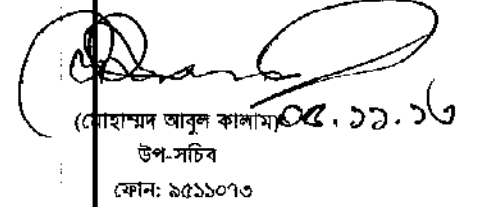 (মোহাম্মদ আবুল কালাম) ০৪.১১.১৬
উপ-সচিব
ফোন: ৯৫১১০৭৩